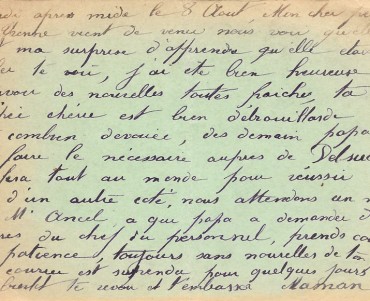 di après midi le 8 Aout Mon cher
vient de venir nous voir quelle
ma surprise d'apprendre qu'elle
te voir, j'ai été bien heureuse
voir des nouvelles toutes fraiches, ta
chérie est bien débrouillarde
combien dévouée, des demain papa
faire le nécessaire aupres de
fera tout au monde pour réussir
d'un autre coté, nous attendons un
Mr Ancel a que papa a demandé
du chef du personnel, prends
patience, toujours sans nouvelles de ton
courrier est suspendu pour quelques jours
te voir et t'embrasse Maman